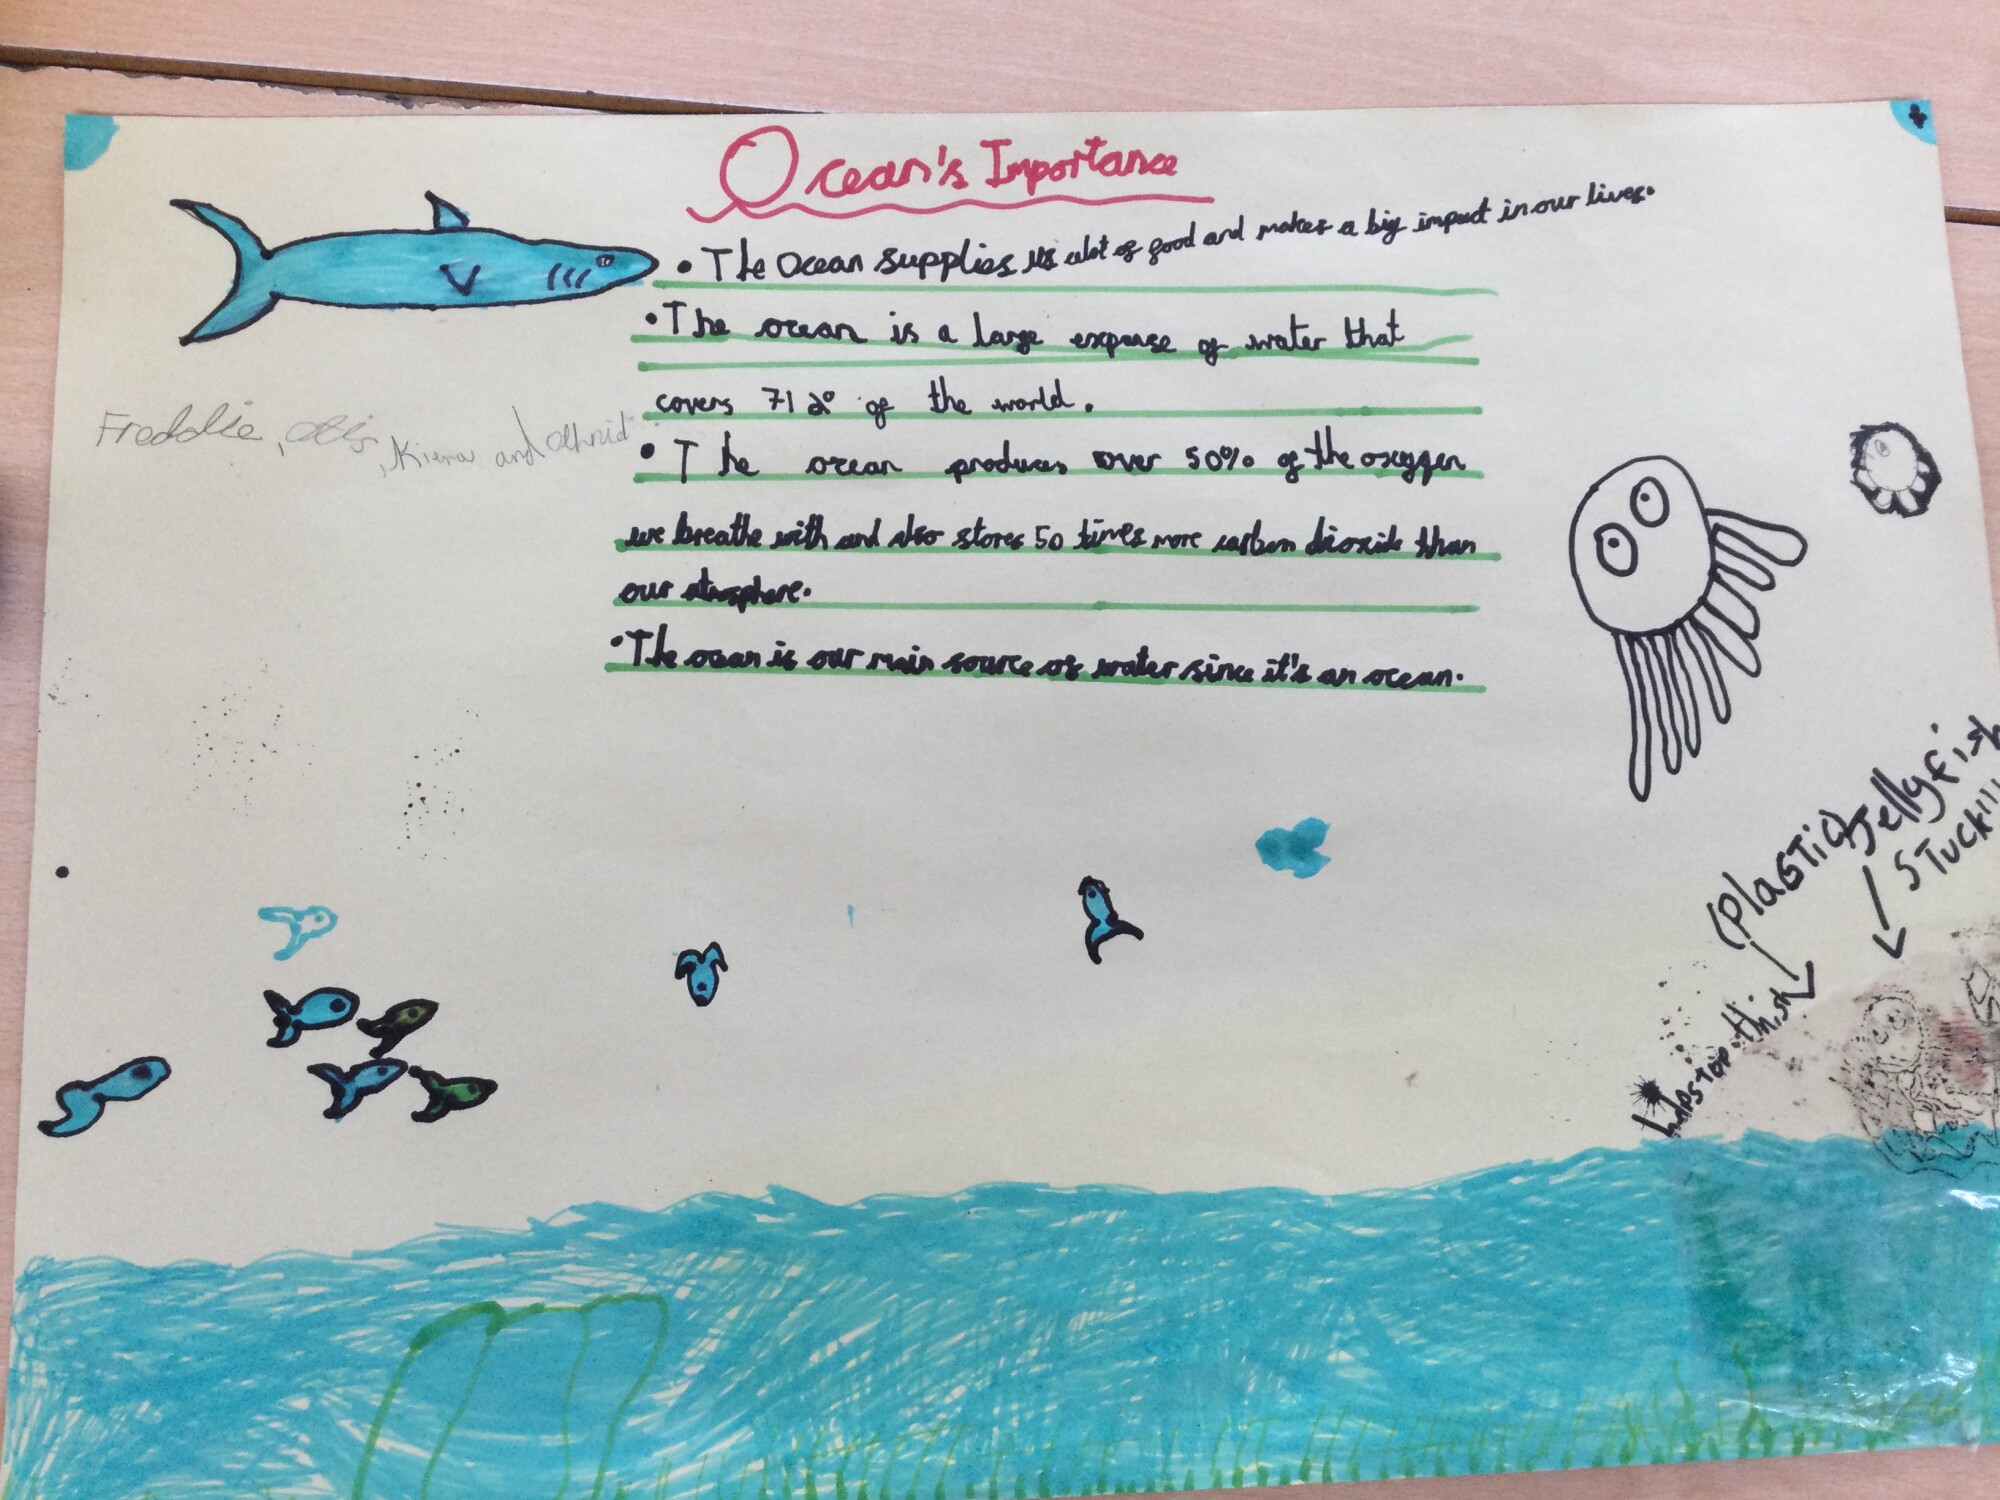 Ocean's Importance
• The Ocean supplies us alot of food and makes a big impact in our lives.
• The ocean is a large expanse of water that
covers 71% of the world.
Freddie, Kiera and
• The ocean produces over 50% of the oxygen
we breathe with and also stores 50 times more carbon dioxide than
our atmosphere.
• The ocean is our main source of water since it's an ocean.
(Plastic) Jellyfish
Stuck!!!
stop this